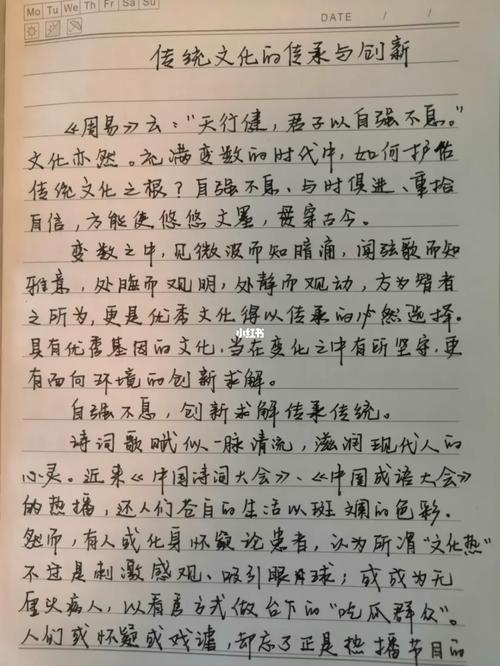 Mo Tu We Th Fr Sa Su
DATE / /
传统文化的传承与创新
《周易》云:"天行健,君子以自强不息。"
文化亦然。充满变数的时代中,如何护佑
传统文化之根?自强不息、与时俱进、重拾
自信,方能使悠悠文墨,贯穿古今。
变数之中,见微波而知暗涌,闻弦歌而知
雅意,处晦而观明,处静而观动,方为智者
之所为,更是优秀文化得以传承的必然选择。
具有优秀基因的文化,当在变化之中有所坚守,更
有面向环境的创新求解。
小红书
自强不息,创新求解传承传统。
诗词歌赋似一脉清流,滋润现代人的
心灵。近来《中国诗词大会》、《中国成语大会》
的热播,还人们苍白的生活以斑斓的色彩。
然而,有人或化身怀疑论患者,认为所谓"文化热"
不过是刺激感观、吸引眼球;或成为无
厘头病人,以看客方式做台下的"吃瓜群众"。
人们或怀疑或戏谑,却忘了正是热播节目的